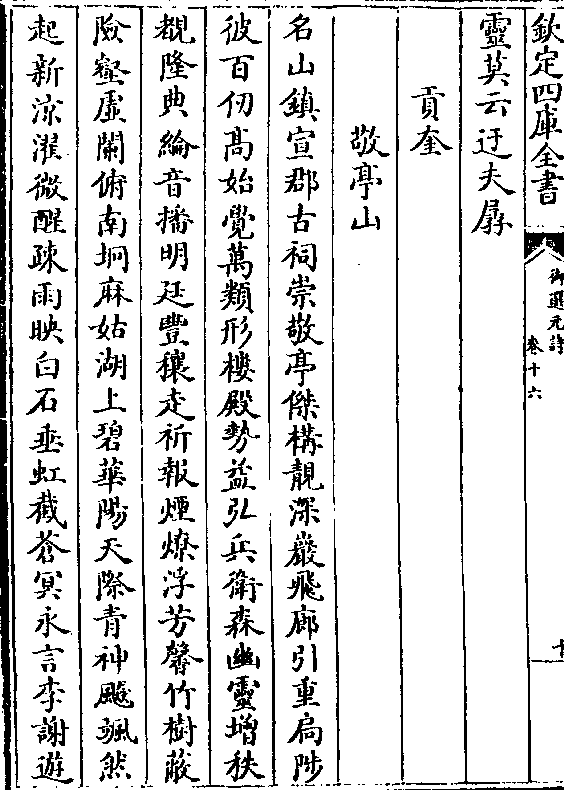 欽定四庫全書
御選元詩
卷十六
靈莫云迂夫孱
貢奎
敬亭山
名山鎮宣郡古祠崇敬亭傑構靚深巖飛廊引重扃陟
彼百仞髙始覺萬類形樓殿勢益弘兵衛森幽靈增秩
覩隆典綸音播明廷豐穰走祈報煙燎浮芳馨竹樹蔽
險壑虛闌俯南坰麻姑湖上碧華陽天際青神飈颯然
起新涼濯微醒疎雨映白石垂虹截蒼冥永言李謝遊